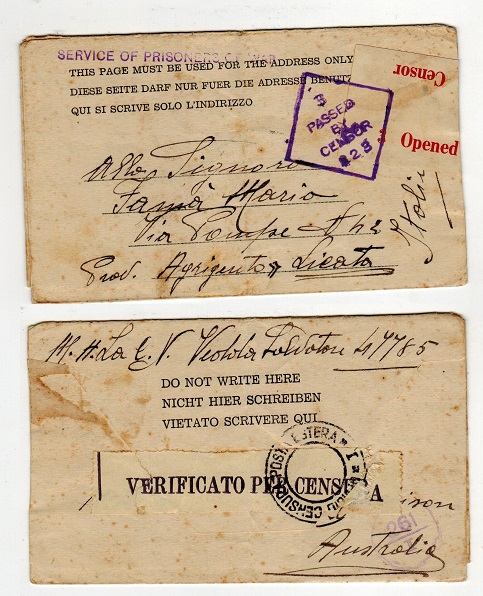 SERVICE OF PRISONERS OF WAR
THIS PAGE MUST BE USED FOR THE ADDRESS ONLY
DIESE SEITE DARF NUR FUER DIE ADRESSE BENUTZ
QUI SI SCRIVE SOLO L'INDIRIZZO
Censor
Opened
3
PASSED
BY
CENSOR
Allo Signore
Famà Mario
Via Pompe
Prov. Agrigento Licata
Italie
Salvatore 47785
DO NOT WRITE HERE
NICHT HIER SCHREIBEN
VIETATO SCRIVERE QUI
POSTA ESTERA
CENSURA
VERIFICATO PER CENSURA
261
Australia